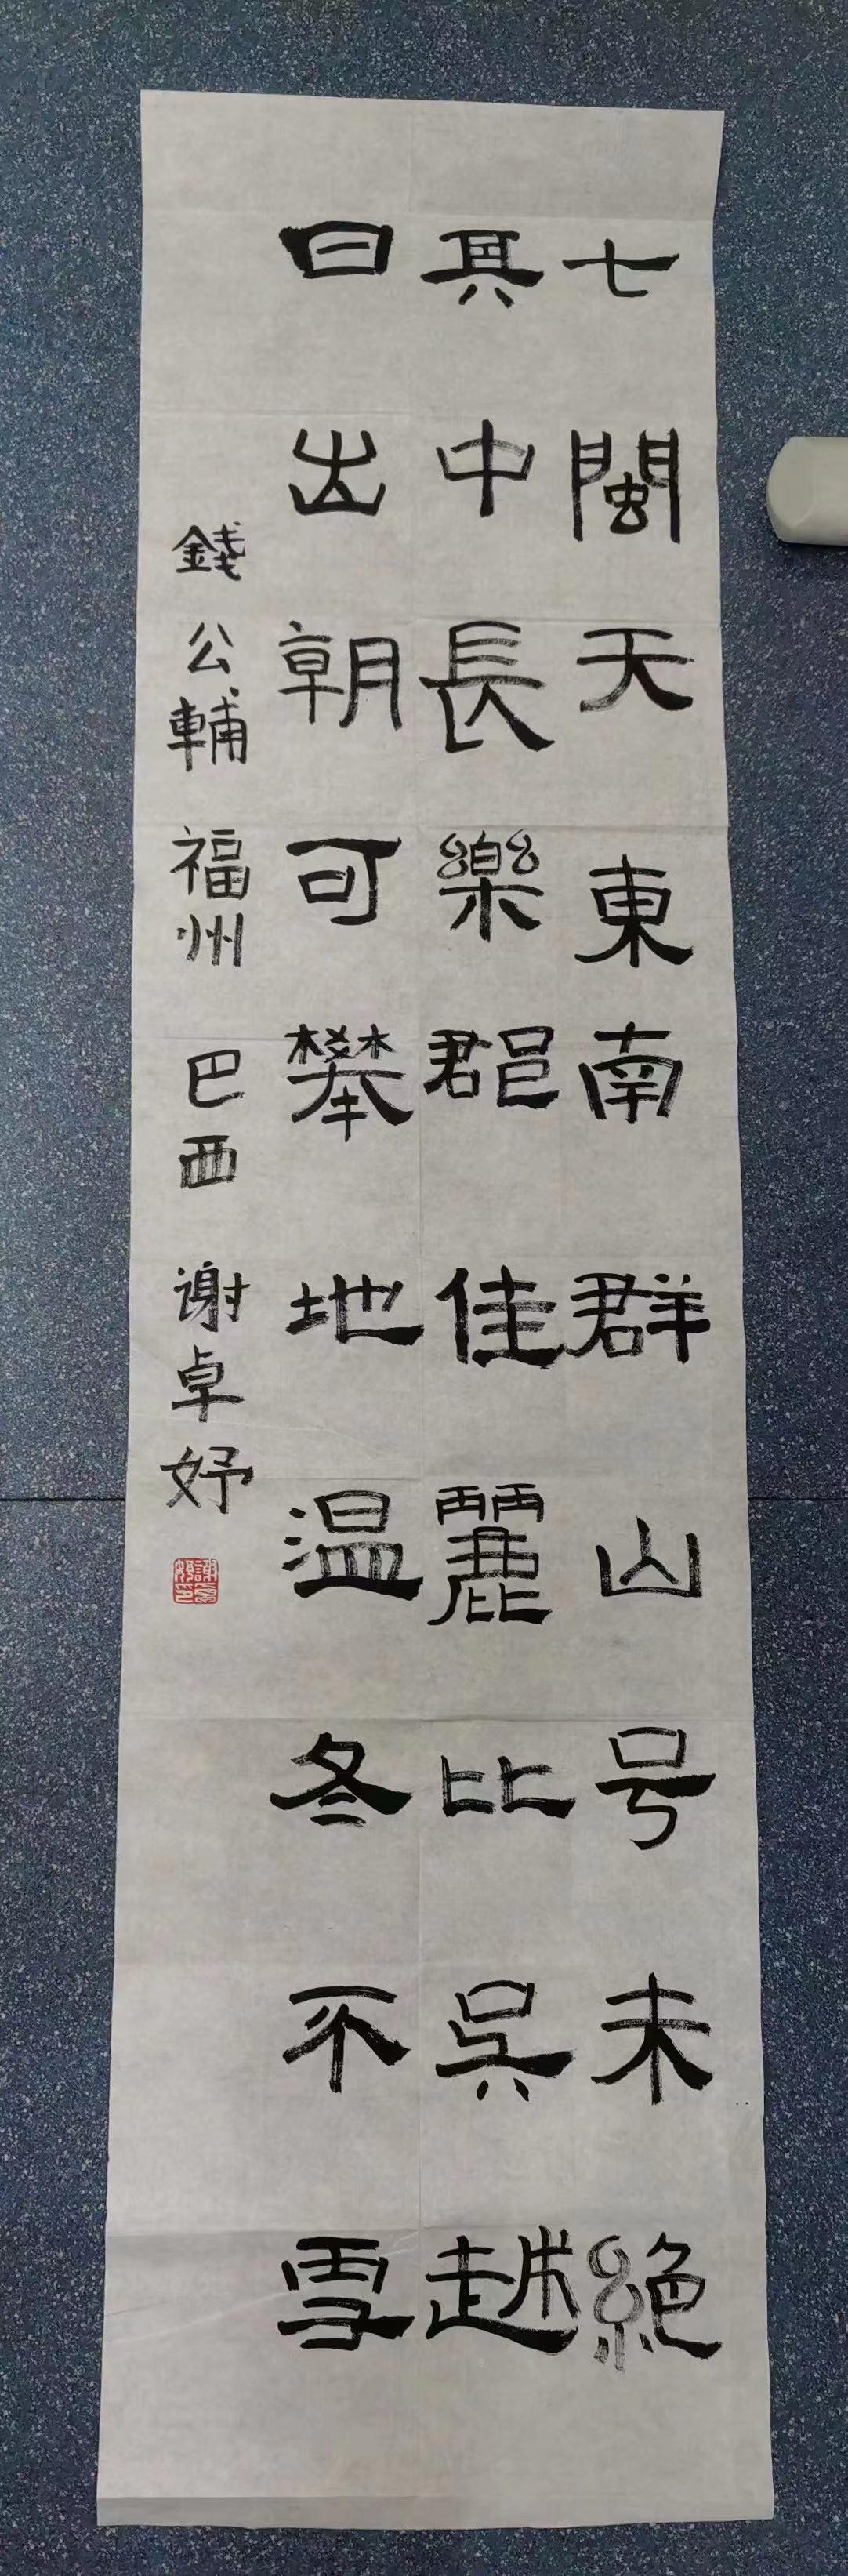 七閩天東南群山号未絶
其中長樂郡佳麗比吳越
日出朝可攀地温冬不雪
錢公輔福州巴西谢卓妤